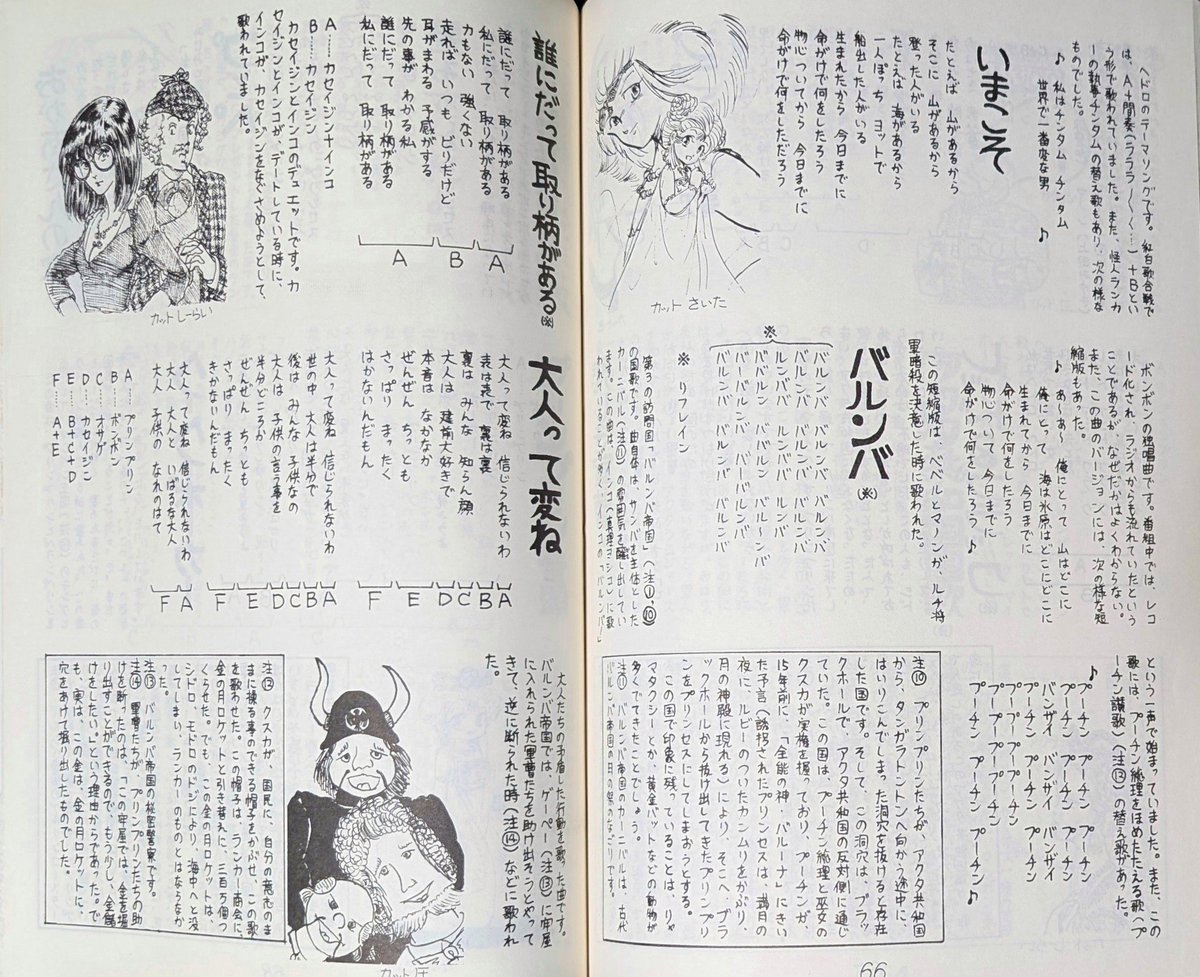 ヘドロのテーマソングです。紅白歌合戦で
は、A+間奏(ラララ〜〜く…)+Bとい
う形で歌われていました。また、怪人ランカ
ーの執事チンタムの替え歌もあり、次の様な
ものでした。
♪ 私はチンタム チンタム
世界で一番変な男 ♪
いまこそ
たとえば 山があるから
そこに 山があるから
登った人がいる
たとえば 海があるから
一人ぽっち ヨットで
船出した人がいる
生まれたから 今日までに
命がけで何をしたろう
物心ついてから 今日までに
命がけで何をしただろう
カット さいた
ボンボンの独唱曲です。番組中では、レコ
ード化され ラジオからも流れていたという
ことであるが、なぜだかはよくわからない。
また、この曲のバージョンには、次の様な短
縮版もあった。
♪ あ〜あ〜 俺にとって 山はどこに
俺にとって 海は水原はどこにどこに
生まれてから 今日までに
命がけで何をしたろう
物心ついて 今日までに
命がけで何をしたろう ♪
この短縮版は、ベベルとマノンが、ルチ将
軍暗殺を決意した時に歌われた。
バルンバ(※)
※
バルンバ バルンバ バルンバ
バルンバ バルンバ バルンバ
ルンバ バルンバ ルンバ
バルンバ バルンバ バル〜ンバ
ルンバ バルンバ ルンバ
バルンバ バルンバ バルンバ
※ リフレイン
第3の訪問国「バルンバ帝国」(注①、⑩)
の国歌です。曲自体は、サンバを主体とした
カーニバル(注⑪)の雰囲気を醸し出してい
という一声で始まっていました。また、この
歌には、プーチン総理をほめたたえる歌(プ
ーチン讃歌)(注⑫)の替え歌があった。
♪
プーチン プーチン プーチン
プーチン プーチン プーチン
バンザイ バンザイ バンザイ
プーチン プーチン プーチン
プープーチン プープーチン
プーチン プーチン プーチン
♪
注⑩ プリンプリンたちが、アクタ共和国
から、タンガラトントンへ向かう途中に、
はいりこんでしまった洞穴を抜けると存在
した国です。そして、この洞穴は、ブラッ
クホールで、アクタ共和国の反対側に通じ
ていた。この国は、プーチン総理と巫女の
クスカが実権を握っており、プーチンが、
15年前に、「全能の神・バルーナ」にきい
た予言(誘拐されたプリンセスは、満月の
夜に、ルビーのついたカンムリをかぶり、
月の神殿に現れる)により、そこへ、ブラ
ックホールから抜け出してきたプリンプリ
ンをプリンセスにしてしまおうとする。
この国で印象に残っていることは、リャ
マタクシーとか、黄金バットなどの動物が
多くでてきたことでしょう。
注⑪ バルンバ帝国のカーニバルは、古代
バルンバ帝国の月の祭のなごりです。
66
誰にだって取り柄がある。※
誰にだって 取り柄がある
私にだって 取り柄がある
力もない 強くない
走れば いつも ビリだけど
耳がまわる 予感がする
先の事が わかる私
誰にだって 取り柄がある
私にだって 取り柄がある
A
B
A
A……カセイジン+インコ
B……カセイジン
カセイジンとインコのデュエットです。カ
セイジンとインコが、デートしている時に、
インコが、カセイジンをなぐさめようとして、
歌われていました。
カット しーらい
大人って変ね
大人って変ね 信じられないわ
表は表で 裏は裏
裏は みんな 知らん顔
大人は 建前大好きで
本音は なかなか
ぜんぜん ちっとも
さっぱり まったく
はかないんだもん
A
B
C
D
E
F
大人って変ね 信じられないわ
世の中 大人は半分で
後は みんな 子供なの
大人は 子供の言う事を
半分どころか
ぜんぜん ちっとも
さっぱり まったく
きかないんだもん
A
B
C
D
E
F
大人って変ね 信じられないわ
大人 大人と いばるな大人
大人 子供の なれのはて
A
F
A……プリンプリン
B……ボンボン
C……オサゲ
D……カセイジン
E……B+C+D
F……A+E
大人たちの矛盾した行動を歌った曲です。
バルンバ帝国では、ゲーペー(注⑬)に牢屋
に入れられた軍曹たちを助け出そうとやって
きて、逆に断られた時(注⑭)などに歌われ
た。
注⑫ クスカが、国民に、自分の意志のま
まに操る事のできる帽子をかぶせ、この歌
を歌わせた。この帽子は、ランカー商会に
金の月ロケットと引き替えに、三百万個つ
くらせた。でも、この金の月ロケットは、
シドロ・モドロのドジにより、海中へと没
してしまい、ランカーのものとはならなか
った。
注⑬ バルンバ帝国の秘密警察です。
注⑭ 軍曹たちが、プリンプリンたちの助
けを断ったのは、「この牢屋では、金を掘
り出すことができるので、もう少し、金儲
けをしたい。」という理由からであった。で
も、実は、この金は、金の月ロケットに、
穴をあけて掘り出したものでした。